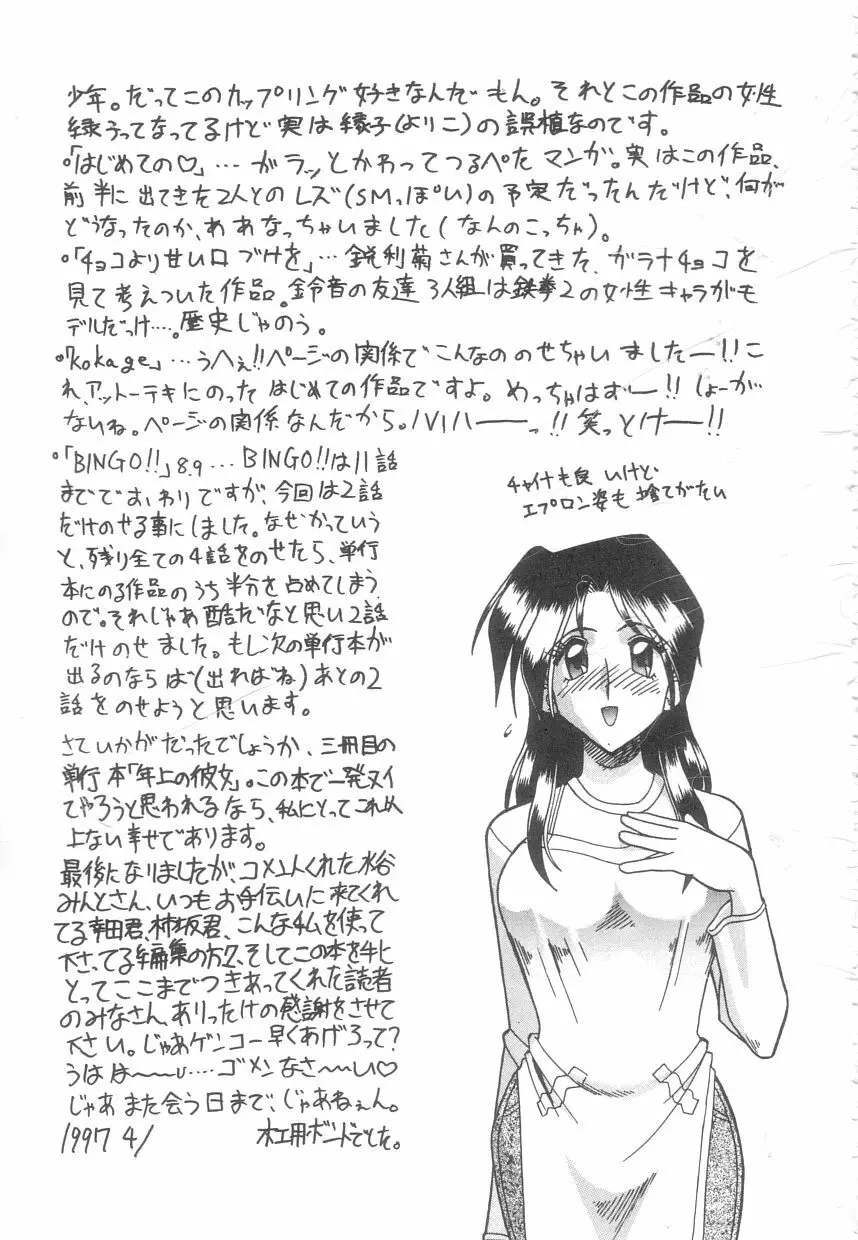 少年。だってこのカップリング好きなんだもん。それとこの作品の女性
縁うってなってるけど実は縁子(よりこ)の誤植なのです。
・「はじめての♡」…ガラッとかわってつるぺたマンガ。実はこの作品、
前半に出てきた2人とのレズ(SMっぽい)の予定だったんだけど、何が
どうなったのか、ああなっちゃいました(なんのこっちゃ)。
・「チョコより甘い口づけを」…鋭利菊さんが買ってきた、ガラナチョコを
見て考えついた作品。鈴音の友達3人組は鉄拳2の女性キャラがモ
デルだっけ…。歴史じゃのう。
・「kokage」…うへぇ!!ページの関係でこんなののせちゃいましたー!!こ
れ、アットーテキにのったはじめての作品ですよ。めっちゃはずー!!しょーが
ないね。ページの関係なんだから。ハハハーーっ!!笑っとけー!!
・「BINGO!!」8.9…BINGO!!は11話
まででおわりですが、今回は2話
だけのせる事にしました。なぜかっていう
と、残り全ての4話をのせたら、単行
本にのる作品のうち半分を占めてしまう
ので。それじゃあ酷だなと思い2話
だけのせました。もし次の単行本が
出るのならば(出ればね)あとの2
話をのせようと思います。
さていかがだったでしょうか、三冊目の
単行本「年上の彼女」。この本で一発ヌイ
てやろうと思われるなら、私にとってこれ以
上ない幸せであります。
最後になりましたが、コメントくれた水谷
みんとさん、いつもお手伝いに来てくれ
てる幸田君、柿坂君、こんな私を使って
下さってる編集の方々、そしてこの本を手に
とってここまでつきあってくれた読者
のみなさん、ありったけの感謝をさせて
下さい。じゃあゲンコー早くあげろって?
うはは〜〜…ゴメンなさ〜〜い♡
じゃあまた会う日まで、じゃあねぇん。
1997 4/ 木工用ボンドでした。
チャイナも良いけど
エプロン姿も捨てがたい